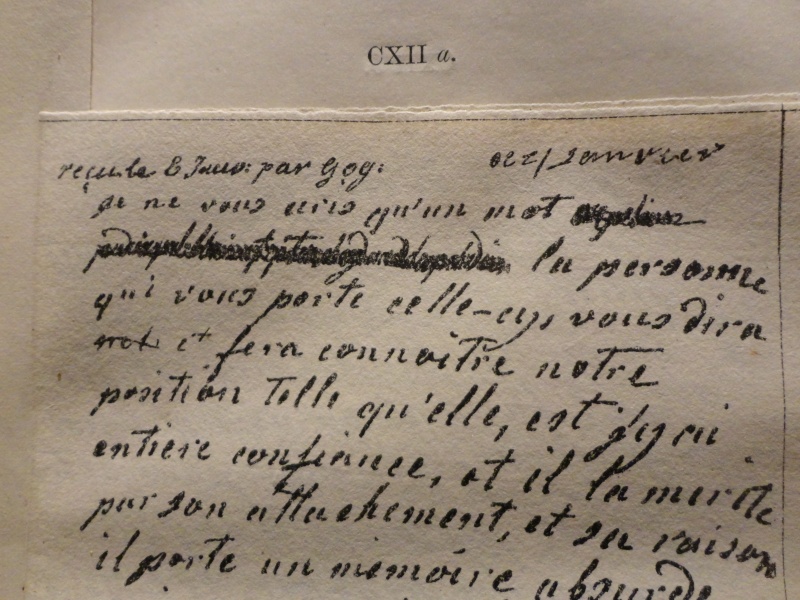 CXII a.
reçu le 8 Janv: par Gog:
ce 2/ Janvier
je ne vous diris qu'un mot
la personne
qui vous porte celle-cy, vous dira
et fera connoître notre
position telle qu'elle, est j'y ai
entière confiance, et il la mérite
par son attachement, et sa raison
il porte un mémoire absurde